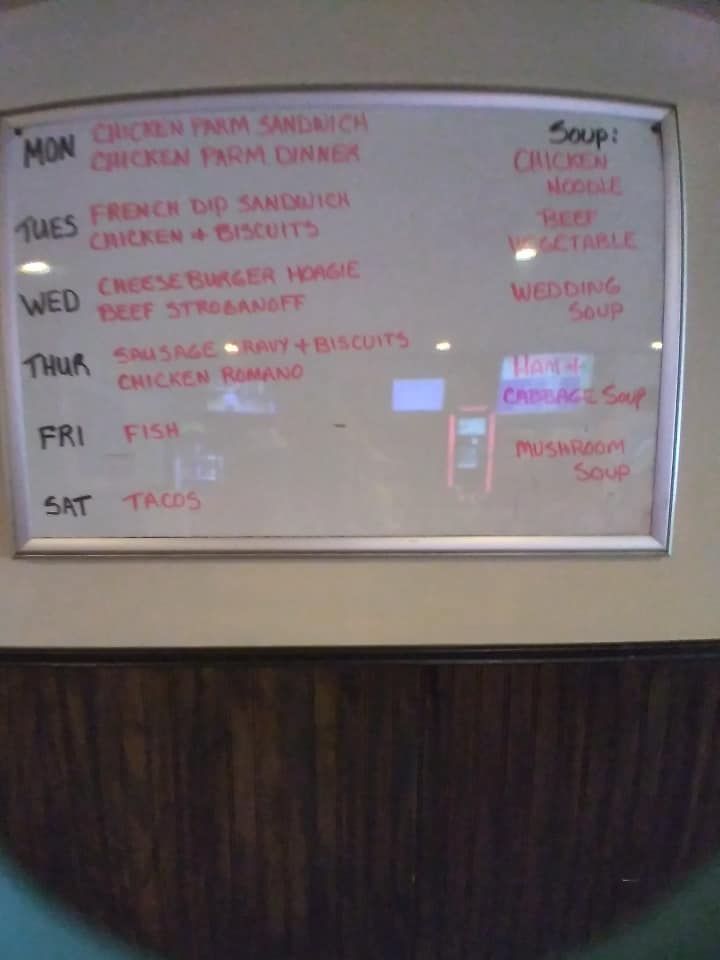 MON CHICKEN PARM SANDWICH
CHICKEN PARM DINNER
Soup:
CHICKEN
NOODLE
TUES FRENCH DIP SANDWICH
CHICKEN + BISCUITS
BEEF
VEGETABLE
WED CHEESEBURGER HOAGIE
BEEF STROGANOFF
WEDDING
SOUP
THUR SAUSAGE GRAVY + BISCUITS
CHICKEN ROMANO
HAM +
CABBAGE SOUP
FRI FISH
MUSHROOM
SOUP
SAT TACOS